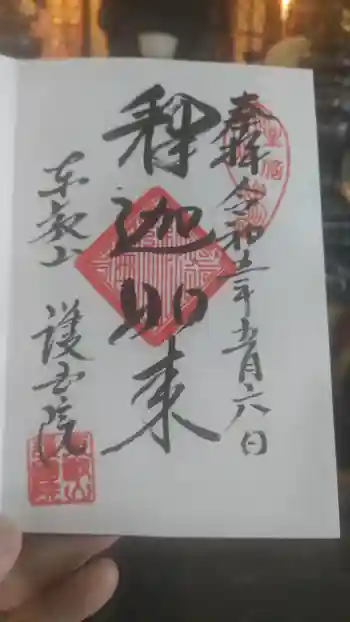 奉拝 令和五年五月六日
釈迦如来
東叡山 護国院